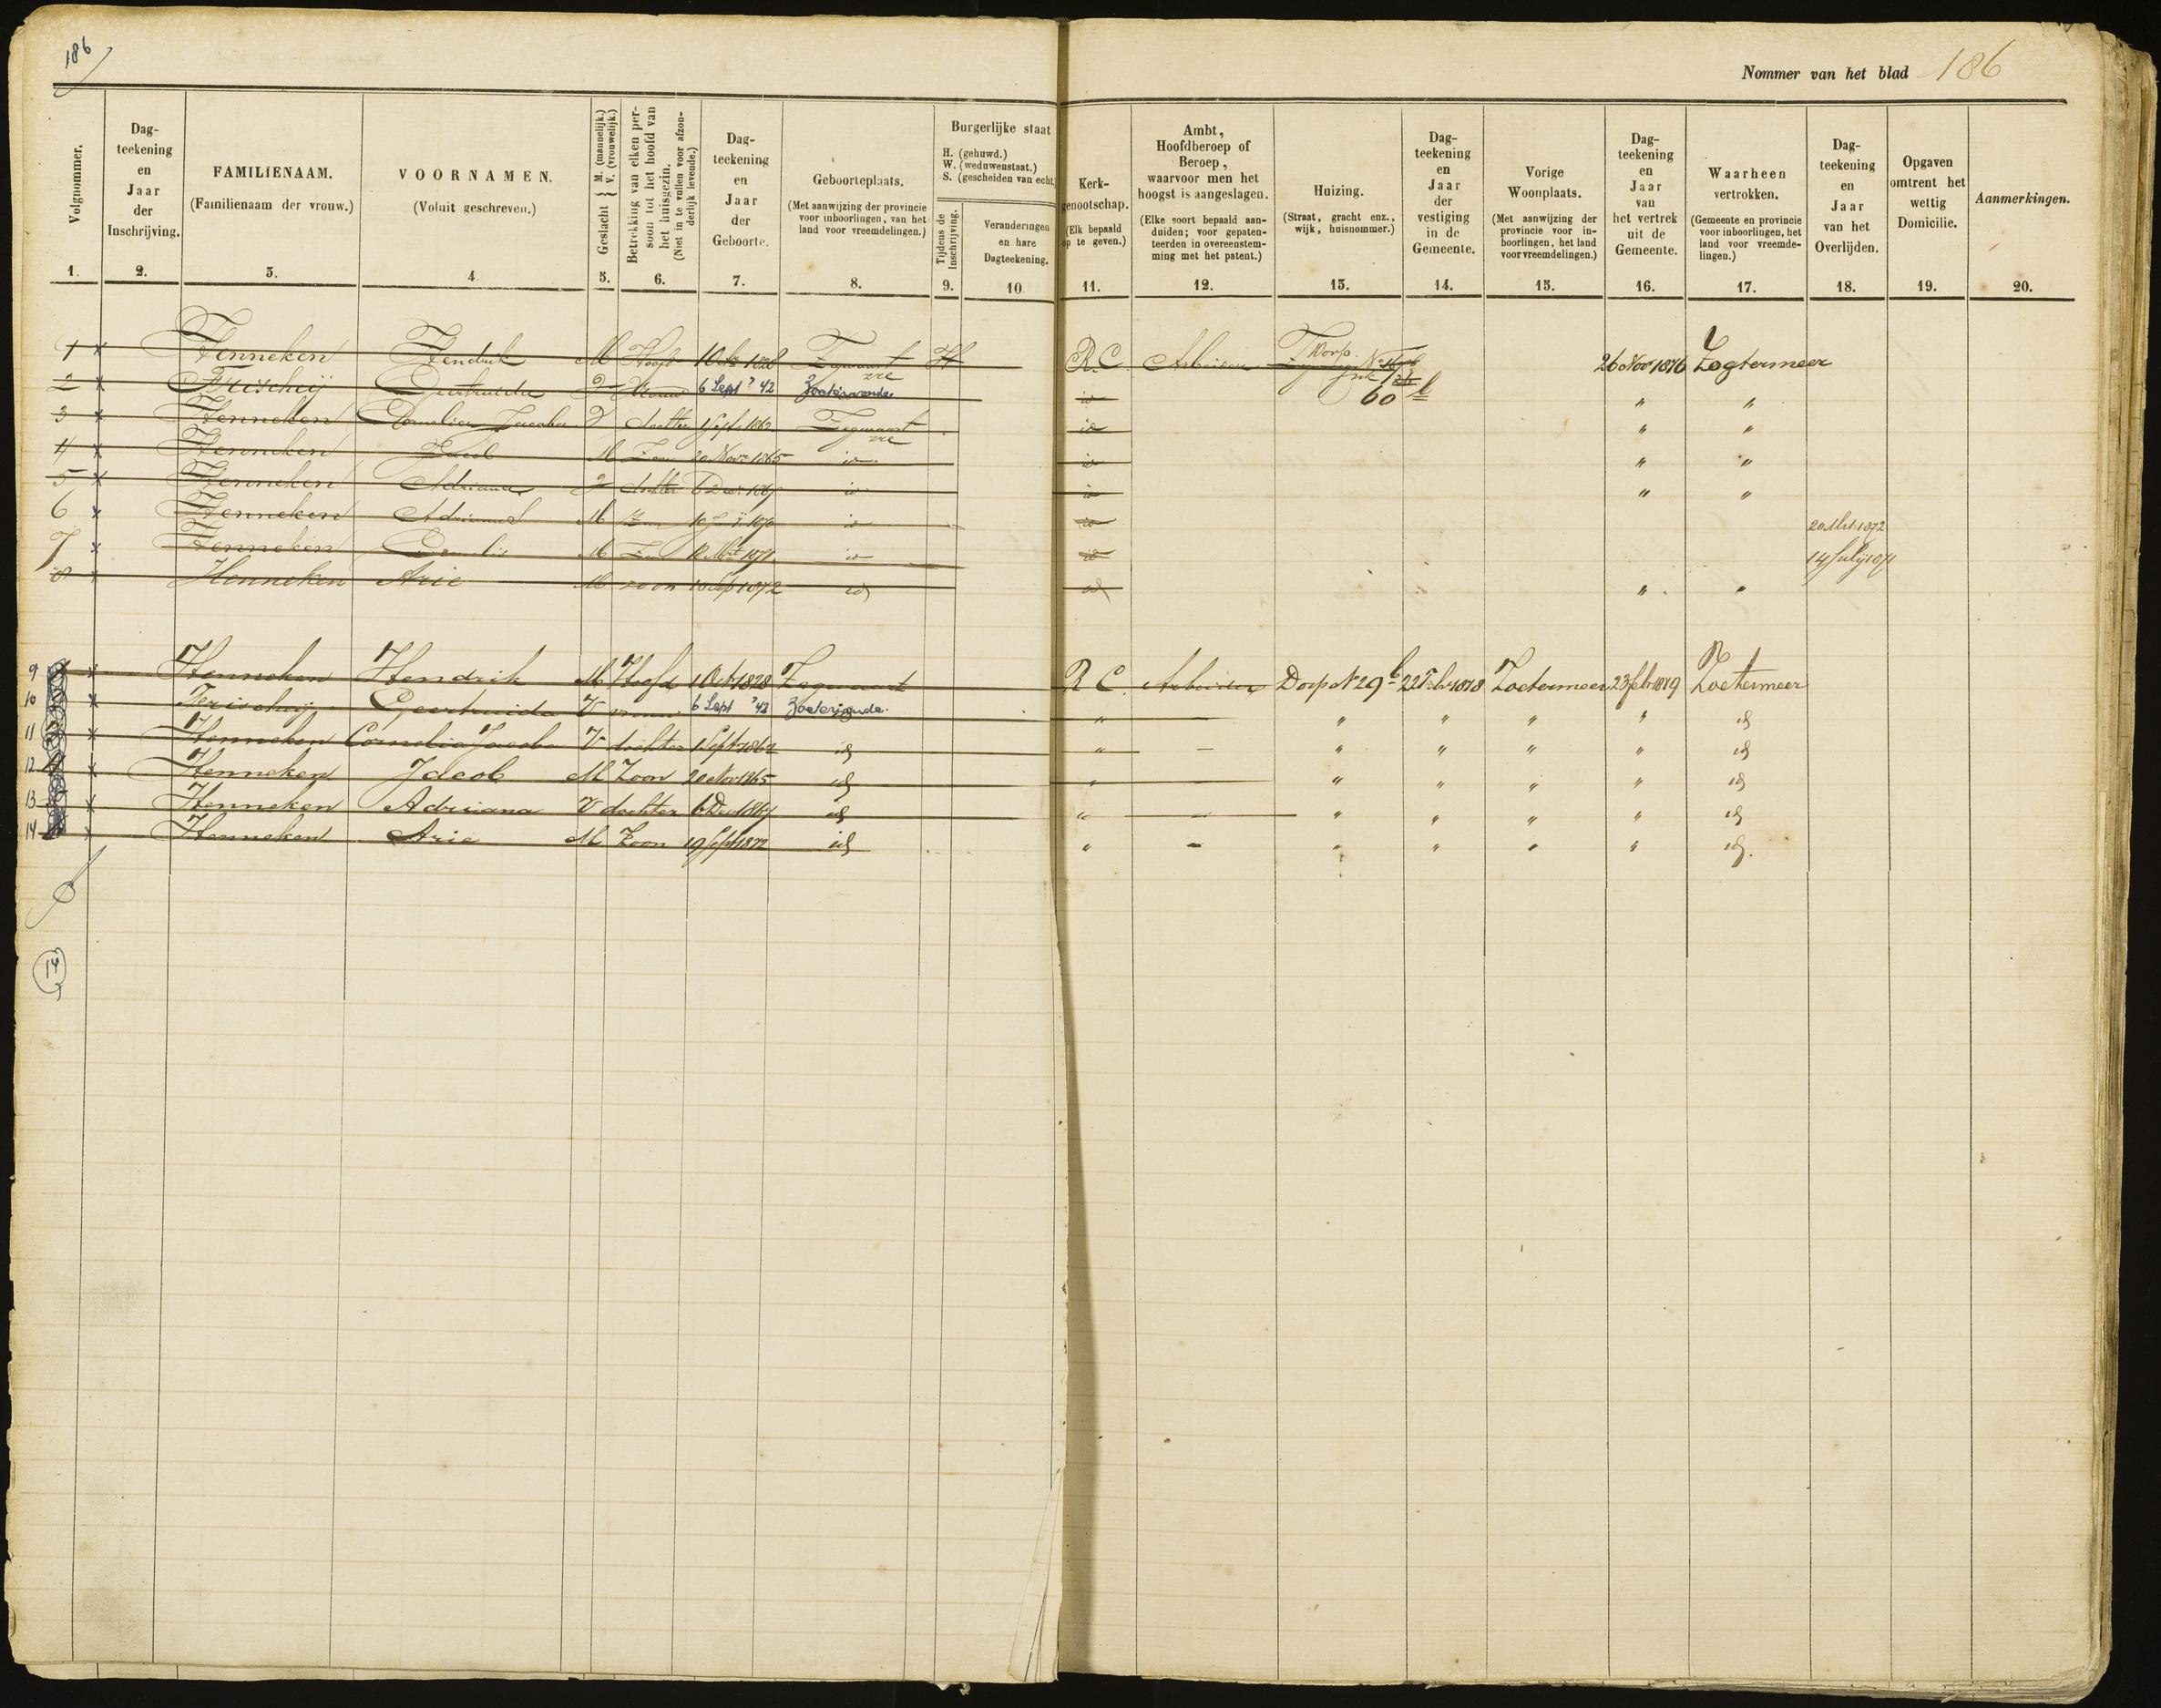 186
Nommer van het blad 186
Volgnommer.
1.
Dag-
teekening
en
Jaar
der
Inschrijving.
2.
FAMILIENAAM.
(Familienaam der vrouw.)
3.
VOORNAMEN.
(Voluit geschreven.)
4
Geslacht } M. (mannelijk.) V. (vrouwelijk.)
5.
Betrekking van elken per-
soon tot het hoofd van
het huisgezin.
(Niet in te vullen voor afzon-
derlijk levende.)
6.
Dag-
teekening
en
Jaar
der
Geboorte.
7.
Geboorteplaats.
(Met aanwijzing der provincie
voor inboorlingen, van het
land voor vreemdelingen.)
8.
Burgerlijke staat
H. (gehuwd.)
W. (weduwenstaat.)
S. (gescheiden van echt.)
Tijdens de
Inschrijving.
9.
Veranderingen
en hare
Dagteekening.
10
Kerk-
genootschap.
(Elk bepaald
op te geven.)
11.
Ambt,
Hoofdberoep of
Beroep,
waarvoor men het
hoogst is aangeslagen.
(Elke soort bepaald aan-
duiden; voor gepaten-
teerden in overeenstem-
ming met het patent.)
12.
Huizing.
(Straat, gracht enz.,
wijk, huisnommer.)
13.
Dag-
teekening
en
Jaar
der
vestiging
in de
Gemeente.
14.
Vorige
Woonplaats.
(Met aanwijzing der
provincie voor in-
boorlingen, het land
voor vreemdelingen.)
15.
Dag-
teekening
en
Jaar
van
het vertrek
uit de
Gemeente.
16.
Waarheen
vertrokken.
(Gemeente en provincie
voor inboorlingen, het
land voor vreemde-
lingen.)
17.
Dag-
teekening
en
Jaar
van het
Overlijden.
18.
Opgaven
omtrent het
wettig
Domicilie.
19.
Aanmerkingen.
20.
1 x Henneken Hendrik M Hoofd 1 Oct 1828 Zegwaart H R.C. Arbeider Dorp 26 Nov 1876 Zogtermeer
2 x Geertruida V Vrouw 6 Sept '42 Zoeterwoude id 60 b " "
3 x Henneken Cornelia Jacoba V dochter 1 Sept 1862 Zegwaart id " "
4 x Henneken Jacob M Zoon 20 Nov 1865 id id " "
5 x Henneken Adriana V dochter 6 Dec 1867 id id " "
6 x Henneken Adrianus M Zoon 1870 id id 20 Mrt 1872
7 x Henneken Cornelis M Zoon Mrt 1871 id id 14 July 1871
8 Henneken Arie M zoon 19 Sep 1872 id id " "
9 x Henneken Hendrik M Hoofd 1 Oct 1828 Zegwaart R C. Arbeider Dorp N 29 b 22 Febr 1878 Zoetermeer 23 febr 1879 Zoetermeer
10 x Geertruida V vrouw 6 Sept '42 Zoeterwoude. " — " " " " id
11 x Henneken Cornelia Jacoba V dochter 1 Sept 1862 id " — " " " " id
12 x Henneken Jacob M Zoon 20 Nov 1865 id " — " " " " id
13 x Henneken Adriana V dochter 6 Dec 1867 id " — " " " " id
14 x Henneken Arie M Zoon 19 Sept 1872 id " - " " " " id.
14